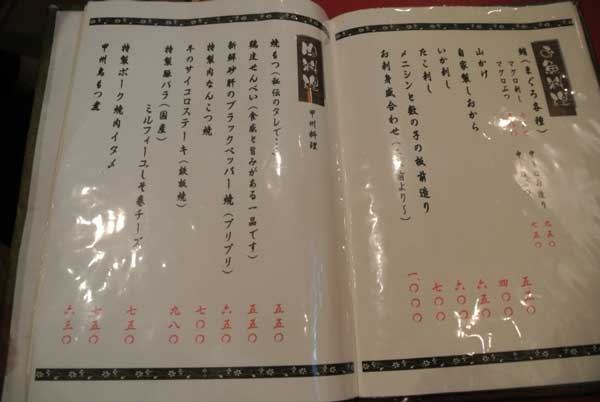 鮪(まぐろ各種)
マグロ刺し
マグロぶつ
中トロお造り 九五〇
七五〇
山かけ 五五〇
自家製しおから 四〇〇
いか刺し 六五〇
たこ刺し 六〇〇
メニシンと数の子の板前造り 七〇〇
お刺身盛合わせ 一、〇〇〇
肉料理
甲州料理
焼もつ(秘伝のタレで… 五五〇
鶏皮せんべい(食感と旨みがある一品です) 五五〇
新鮮砂肝のブラックペッパー焼(プリプリ) 六五〇
特製肉なんこつ焼 七〇〇
牛のサイコロステーキ(鉄板焼) 九八〇
特製豚バラ(国産)
ミルフィーユしそ巻チーズ 七五〇
特製ポーク焼肉イタメ 七五〇
甲州鳥もつ煮 六五〇